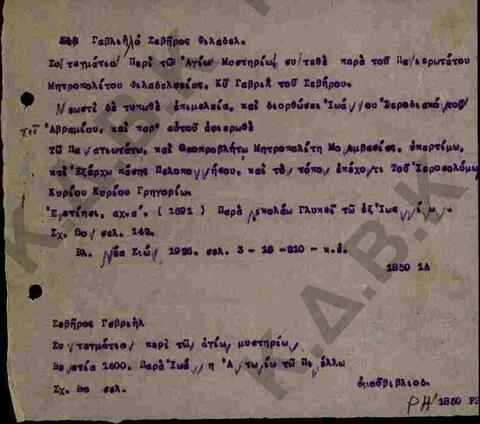 Γαβριήλ Σεβῆρος Φιλαδελ.
Συνταγμάτιον Περὶ τῶν Ἁγίων Μυστηρίων, συντεθὲ παρὰ τοῦ Πανιερωτάτου
Μητροπολίτου Φιλαδελφείας, Κῦ Γαβριὴλ τοῦ Σεβήρου.
Νεωστὶ δὲ τυπωθὲ ἐπιμελεία, καὶ διορθώσει Ἰωάννου
Ἀβραμίου, καὶ παρ' αὐτοῦ ἀφιερωθὲ
Τῶ Πανιερωτάτω, καὶ Θεοπροβλήτω Μητροπολίτη Μονεμβασίας, ὑπερτίμω,
καὶ Ἐξάρχω πάσης Πελοποννήσου, καὶ τὸν τόπον ἐπέχοντι Τοῦ Ἱεροσολύμων
Κυρίου Κυρίου Γρηγορίω.
Ἐνετίησι, αχ.α. (1691) Παρὰ Νικολάω Γλυκεῖ τῶ ἐξ Ἰωαννίνων.
Σχ. 8ον, σελ. 142.
Βλ. Νέα Σιών 1926. σελ. 3-18-210 - κ.ἑ.
1850 1Δ
Σεβῆρος Γαβριὴλ
Συνταγμάτιον περὶ τῶν ἁγίων μυστηρίων
Βενετία 1600. Παρὰ Ἰωάννη Ἀντωνίω τῶ Πινέλλω
Σχ. 8ο σελ.
ὁμοσβιβλιοδ.
ΡΗ 1850
Κ.Δ.Β.Κ